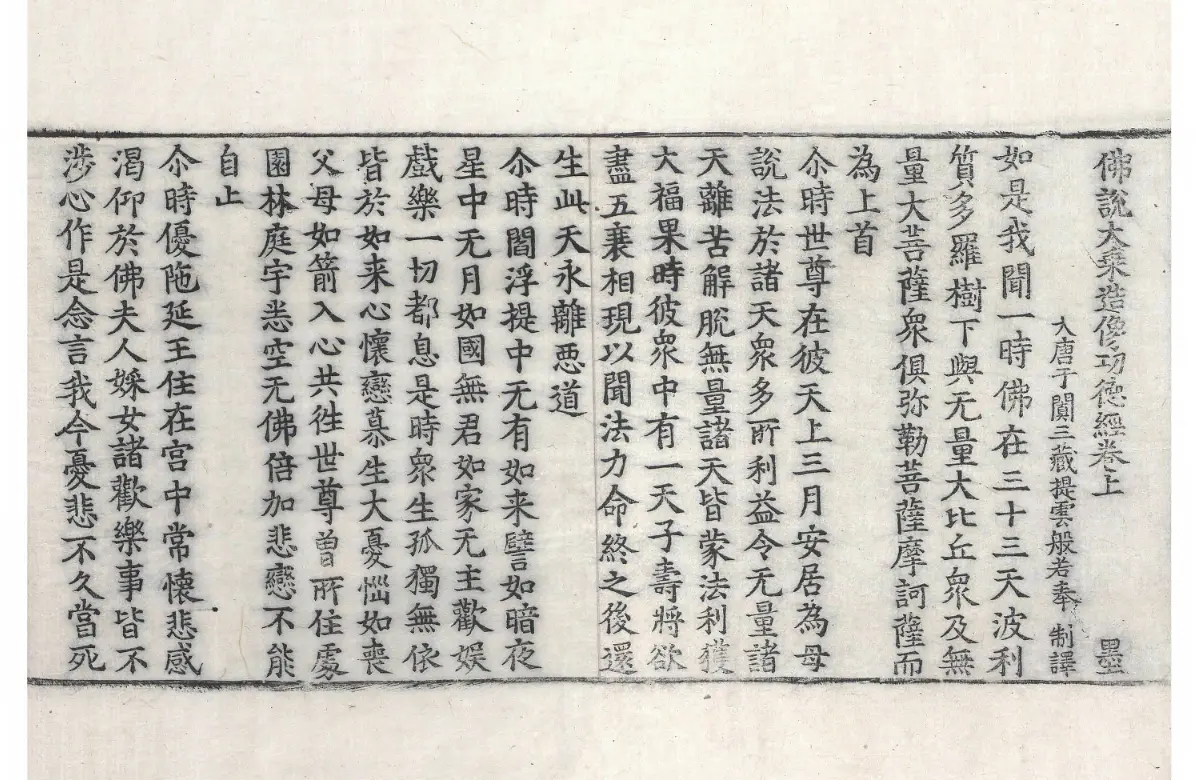 佛說大乗造像功德經卷上　墨
大唐于闐三藏提雲般若奉　制譯
如是我聞一時佛在三十三天波利
質多羅樹下與无量大比丘衆及無
量大菩薩衆俱弥勒菩薩摩訶薩而
為上首
尒時世尊在彼天上三月安居為母
說法於諸天衆多所利益令无量諸
天離苦解脫無量諸天皆蒙法利獲
大福果時彼衆中有一天子壽將欲
盡五衰相現以聞法力命終之後還
生此天永離惡道
尒時閻浮提中无有如来譬如暗夜
星中无月如國無君如家无主歡娱
戲樂一切都息是時衆生孤獨無依
皆於如来心懷戀慕生大憂惱如喪
父母如箭入心共徃世尊曾所住處
園林庭宇悉空无佛倍加悲戀不能
自止
尒時優陁延王住在宮中常懷悲感
渴仰於佛夫人婇女諸歡樂事皆不
渉心作是念言我今憂悲不久當死